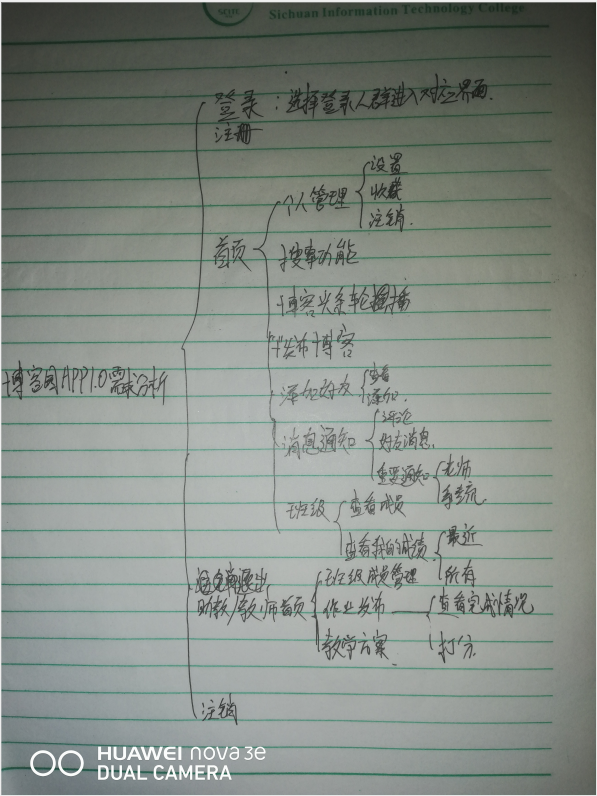 Sichuan Information Technology College
登录：选择登录人群进入对应界面.
注册
个人管理
设置
收藏
注销.
首页
搜索功能
博客头条轮播
发布博客
添加好友
查看
添加.
消息通知
评论
好友消息.
重要通知
老师
系统.
博客园APP1.0需求分析
班级
查看成员
查看我的成绩.
最近
所有
助教/教师首页
班级成员管理
作业发布
查看完成情况
打分.
教学方案
注销
HUAWEI nova 3e
DUAL CAMERA